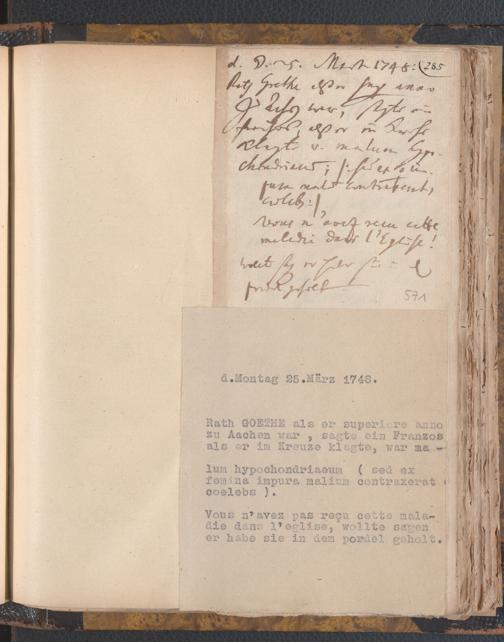 d. 25. Mart 1748:
285
Rath Goethe als er sup. anno
zu Achen war, sagte ein
Franzos, als er im Kreuz
klagte w. malum hypo-
chondriacum; /: sed ex foem.
impura malum contraxerat,
coelebs :/
vous n'avez recu cette
maladie dans l'Eglise!
wolt sag er habe sie in d
571
d.Montag 25.März 1748.
Rath GOETHE als er superiore anno
zu Aachen war , sagte ein Franzos
als er im Kreuze klagte, war ma -
lum hypochondriaeum ( sed ex
femina impura malium contraxerat
coelebs ).
Vous n'avez pas reçu cette mala-
die dans l'eglise, wollte sagen
er habe sie in dem pordel geholt.